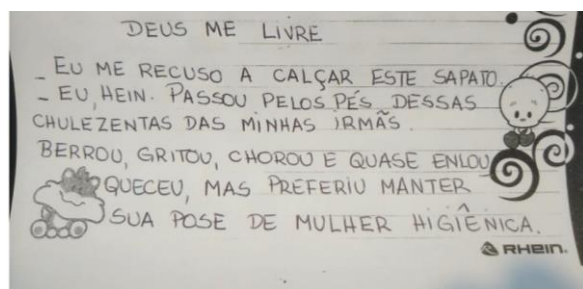 DEUS ME LIVRE
_ EU ME RECUSO A CALÇAR ESTE SAPATO.
_ EU, HEIN. PASSOU PELOS PÉS DESSAS
CHULEZENTAS DAS MINHAS IRMÃS.
BERROU, GRITOU, CHOROU E QUASE ENLOU
QUECEU, MAS PREFERIU MANTER
SUA POSE DE MULHER HIGIÊNICA.
RHEIN.